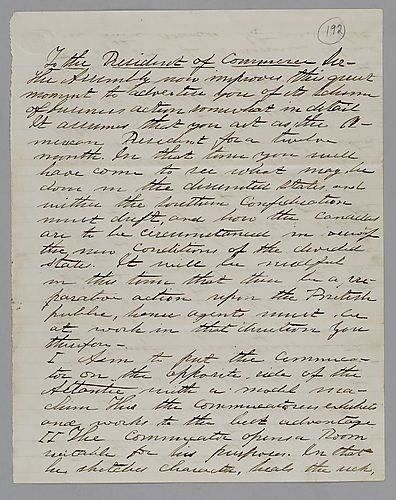 192
To the President of Commerce Sir—
The Assembly now improves this great
moment to advertise you of its scheme
of business action somewhat in detail
It assumes that you act as the A-
merican President for a twelve
month. In that time you will
have come to see what may be
done in the disunited States, and
whither the Southern Confederation
must drift, and how the Canadas
are to be circumstanced in view of
the new conditions of the divided
States. It will be needful
in this time that there be a pre
parative action upon the British
public, hence agents must be
at work in that direction you
therefore—
I Aim to put the Communica-
tor on the opposite side of the
Atlantic with a model me-
dium Thus the Communicator exhibits
and works to the best advantage
II The Communicator opens a Room
suitable for his purposes. In that
he sketches character, heals the sick,